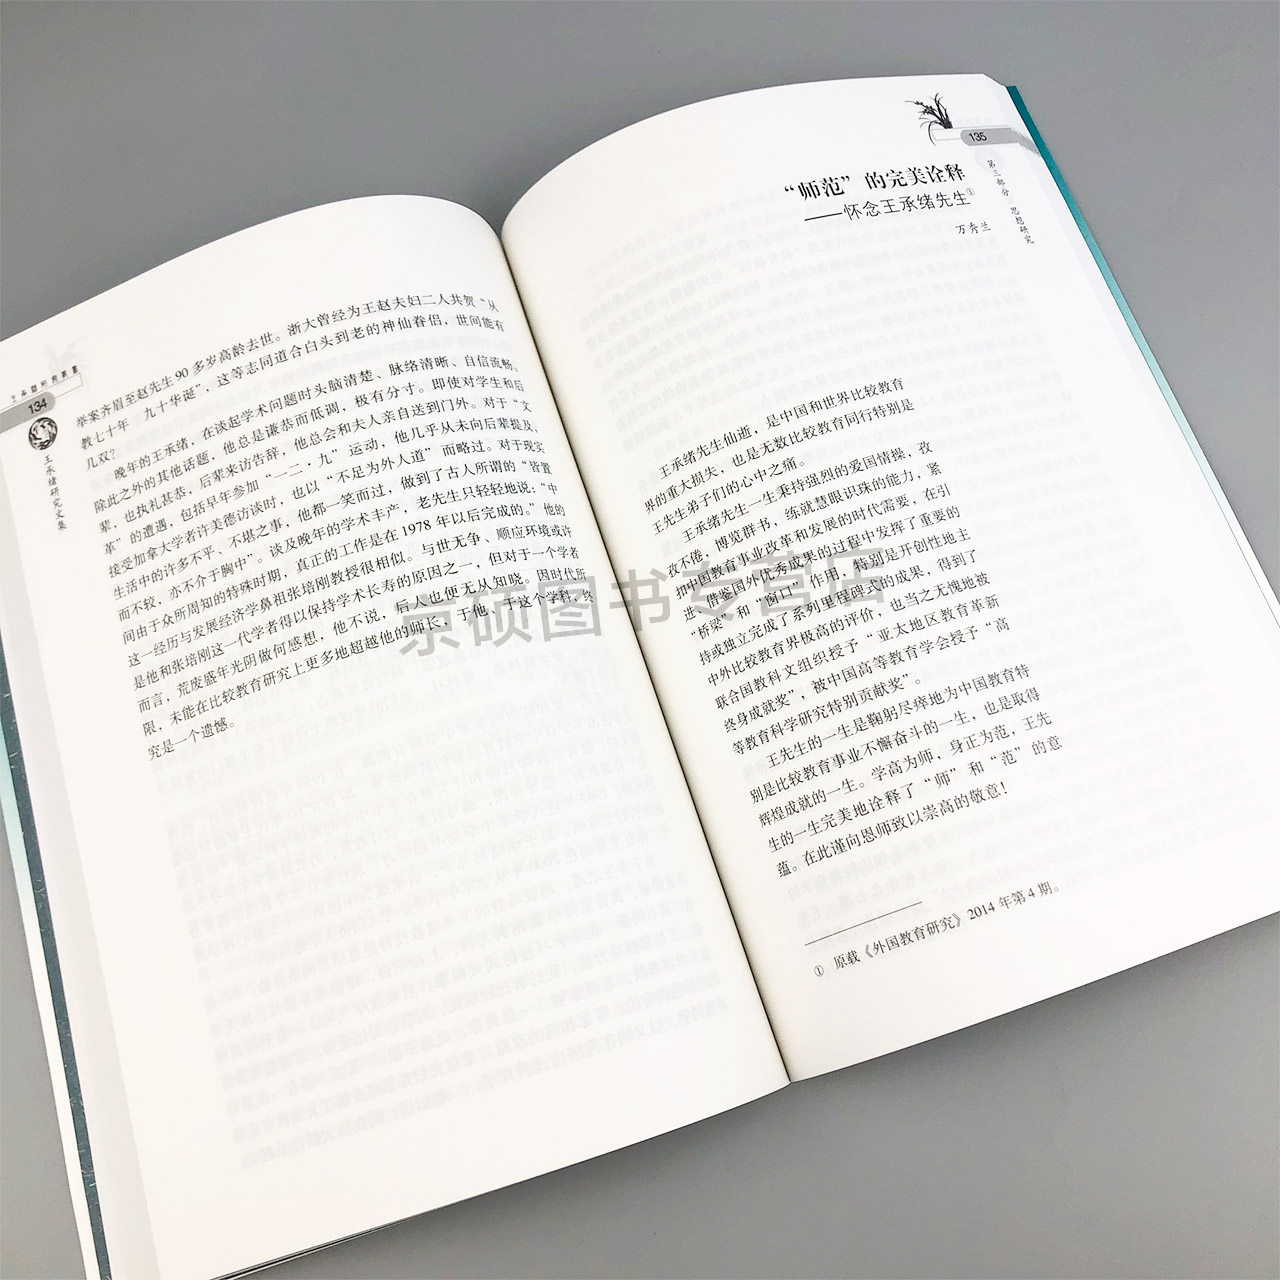 134
王承绪研究文集
举案齐眉至赵先生 90 多岁高龄去世。浙大曾经为王赵夫妇二人共贺“从
教七十年　九十华诞”，这等志同道合白头到老的神仙眷侣，世间能有
几双？
晚年的王承绪，在谈起学术问题时头脑清楚、脉络清晰、自信流畅。
除此之外的其他话题，他总是谦恭而低调，极有分寸。即使对学生和后
辈，也执礼甚恭，后辈来访告辞，他总会和夫人亲自送到门外。对于“文
革”的遭遇，包括早年参加“一二·九”运动，他几乎从未向后辈提及，
接受加拿大学者许美德访谈时，也以“不足为外人道”而略过。对于现实
生活中的许多不平、不堪之事，他都一笑而过，做到了古人所谓的“皆置
而不较，亦不介于胸中”。谈及晚年的学术丰产，老先生只轻轻地说：“中
间由于众所周知的特殊时期，真正的工作是在 1978 年以后完成的。”他的
这一经历与发展经济学鼻祖张培刚教授很相似。与世无争、顺应环境或许
是他和张培刚这一代学者得以保持学术长寿的原因之一，但对于一个学者
而言，荒废盛年光阴做何感想，他不说，后人也便无从知晓。因时代所
限，未能在比较教育研究上更多地超越他的师长，于他、于这个学科，终
究是一个遗憾。
135
第三部分　思想研究
“师范”的完美诠释
——怀念王承绪先生①
万秀兰
王承绪先生仙逝，是中国和世界比较教育
界的重大损失，也是无数比较教育同行特别是
王先生弟子们的心中之痛。
王承绪先生一生秉持强烈的爱国情操，孜
孜不倦，博览群书，练就慧眼识珠的能力，紧
扣中国教育事业改革和发展的时代需要，在引
进、借鉴国外优秀成果的过程中发挥了重要的
“桥梁”和“窗口”作用，特别是开创性地主
持或独立完成了系列里程碑式的成果，得到了
中外比较教育界极高的评价，也当之无愧地被
联合国教科文组织授予“亚太地区教育革新
终身成就奖”，被中国高等教育学会授予“高
等教育科学研究特别贡献奖”。
王先生的一生是鞠躬尽瘁地为中国教育特
别是比较教育事业不懈奋斗的一生，也是取得
辉煌成就的一生。学高为师，身正为范，王先
生的一生完美地诠释了“师”和“范”的意
蕴。在此谨向恩师致以崇高的敬意！
① 原载《外国教育研究》2014 年第 4 期。
京硕图书专营店